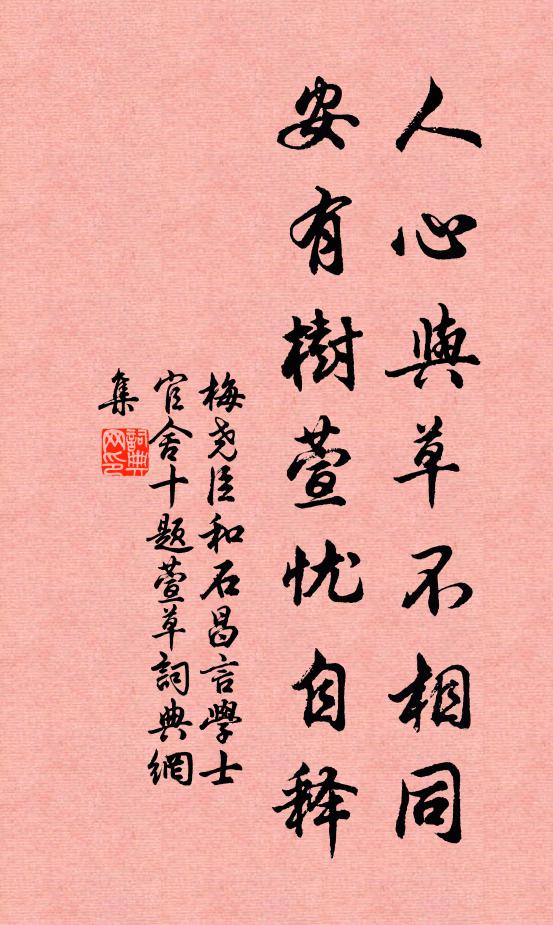 人心與草不相同
安有樹萱忧自释
梅尧臣和石昌言學士
官舍十题萱草詞典網
集
詞典
网印